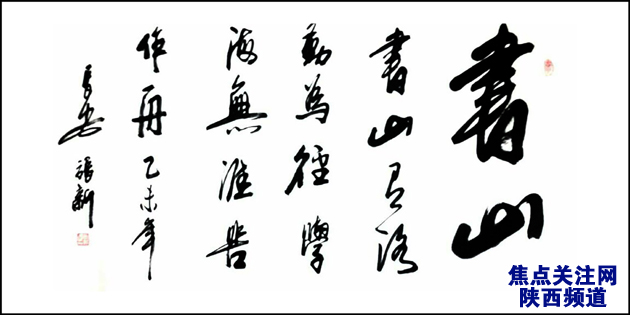 書山
書山有路
勤為徑學
海無涯苦
作舟乙未年
長安張新
焦点关注网
陕西频道